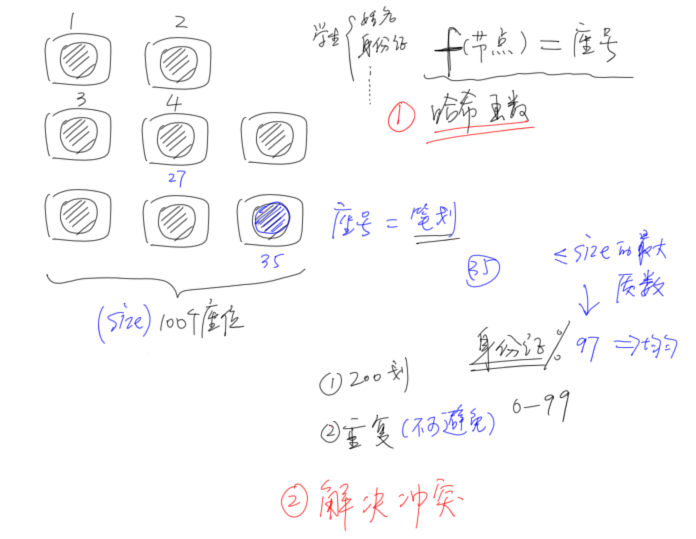 1 2
3 4
27
35
(size) 100个座位
学生 { 姓名
身份证
f(节点) = 座号
① 哈希函数
座号 = 笔划
35
≤ size的最大
质数
身份证 % 97 => 均匀
0-99
① 200划
② 重复 (不可避免)
② 解决冲突